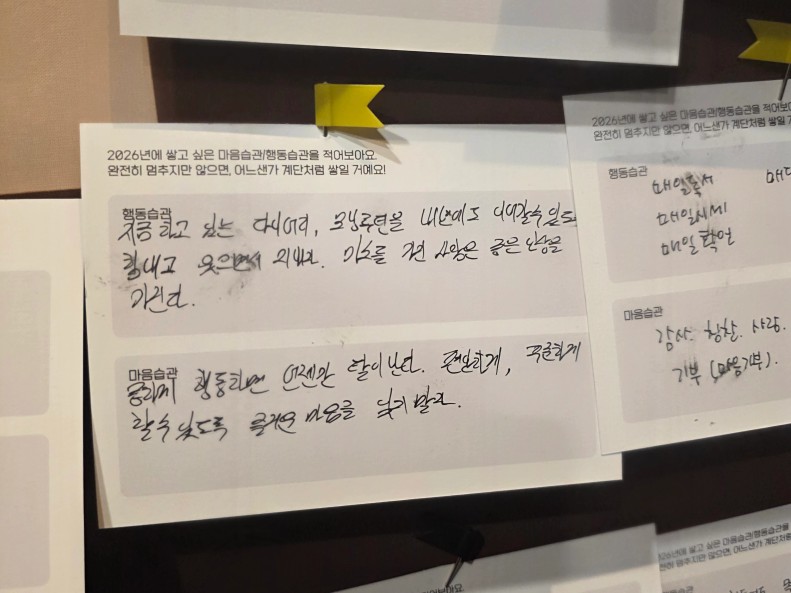 2026년에 쌓고 싶은 마음습관/행동습관을 적어보아요.
완전히 멈추지만 않으면, 어느샌가 계단처럼 쌓일 거예요!
행동습관
지금 하고 있는 다이어리, 모닝루틴을 내년에도 이어갈수 있도록
힘내고 웃으면서 의 사람은 좋은 인상을
가진다.
마음습관
행동하면 언젠가 탈이 난다. 편안하게, 꾸준하게
할수 있도록 즐거운 마음을 잊지 말자.
2026년에 쌓고 싶은 마음습관/행동습관을 적어
완전히 멈추지만 않으면, 어느샌가 계단처럼 쌓일 거
행동습관
매일독서
매일시세
매일확언
마음습관
감사. 칭찬. 사랑.
기부 (마음기부).
2026년에 쌓고 싶은 마음습관/행동습관을
완전히 멈추지만 않으면, 어느샌가 계단처럼
행동습관
적어보아요.